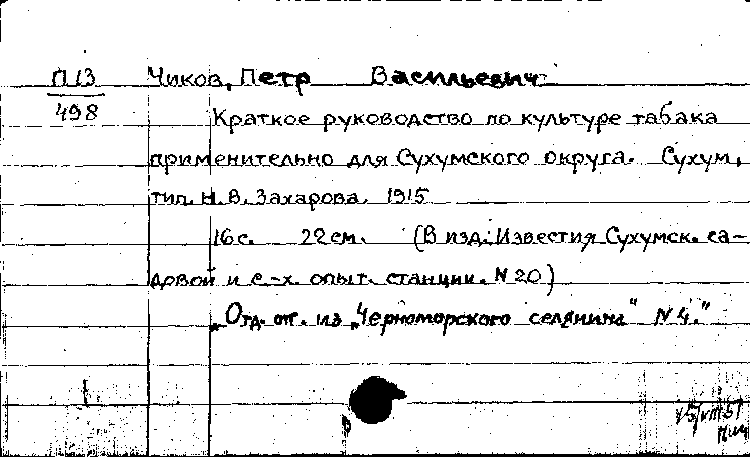 П 13 Чиков, Петр Васильевич
498
Краткое руководство по культуре табака
применительно для Сухумского округа. Сухум,
тип. Н. В. Захарова. 1915
16 с. 22 см. (В изд: Известия Сухумск. са-
довой и с.-х. опыт. станции. № 20)
„Отд. от. из „Черноморского селянина" № 4."